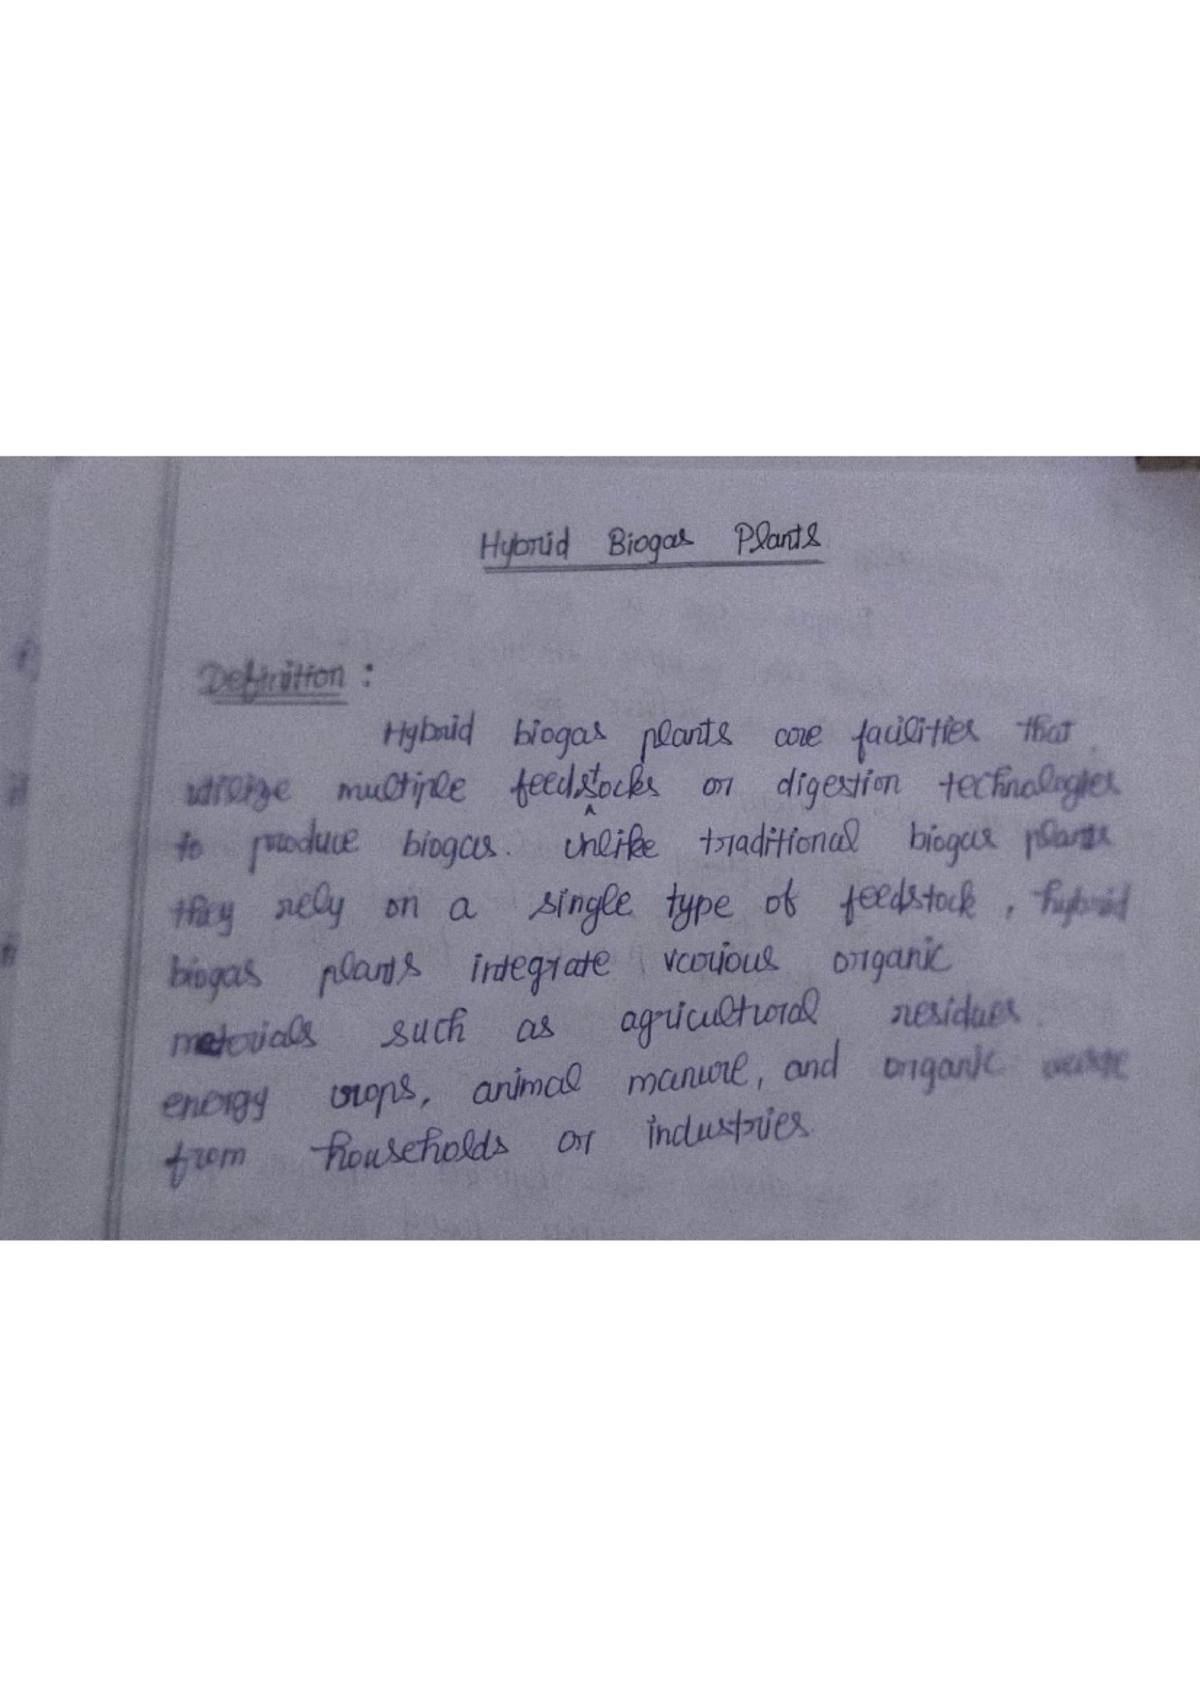 Hybrid Biogas Plants
Definition :
Hybrid biogas plants are facilities that
utilize multiple feedstocks or digestion technologies
to produce biogas. Unlike traditional biogas plants
they rely on a single type of feedstock, hybrid
biogas plants integrate various organic
materials such as agricultural residues
energy crops, animal manure, and organic waste
from households or industries